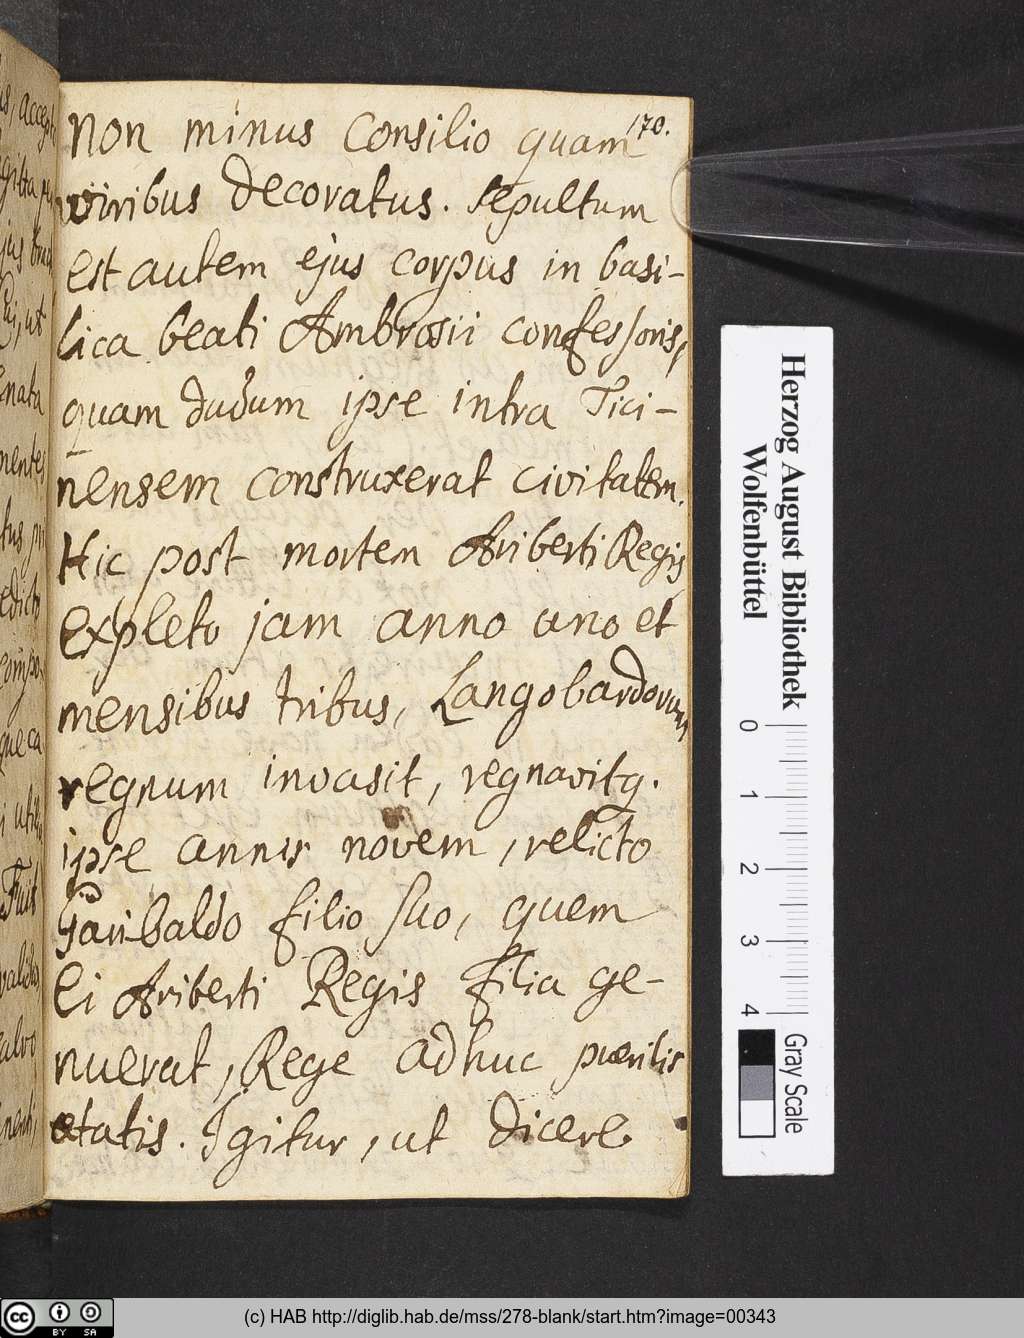 170.
non minus Consilio quam
viribus decoratus. Sepultum
est autem ejus corpus in basi-
lica beati Ambrosii confessoris,
quam dudum ipse intra Tici-
nensem construxerat civitatem.
Hic post mortem Ariberti Regis
expleto jam anno uno et
mensibus tribus, Langobardorum
regnum invasit, regnavitq.
ipse annis novem, relicto
Garibaldo filio suo, quem
Ei Ariberti Regis filia ge-
nuerat, Rege adhuc puerilis
etatis. Igitur, ut dicere
Herzog August Bibliothek
Wolfenbüttel
0 1 2 3 4
Gray Scale
(c) HAB http://diglib.hab.de/mss/278-blank/start.htm?image=00343
cc BY SA